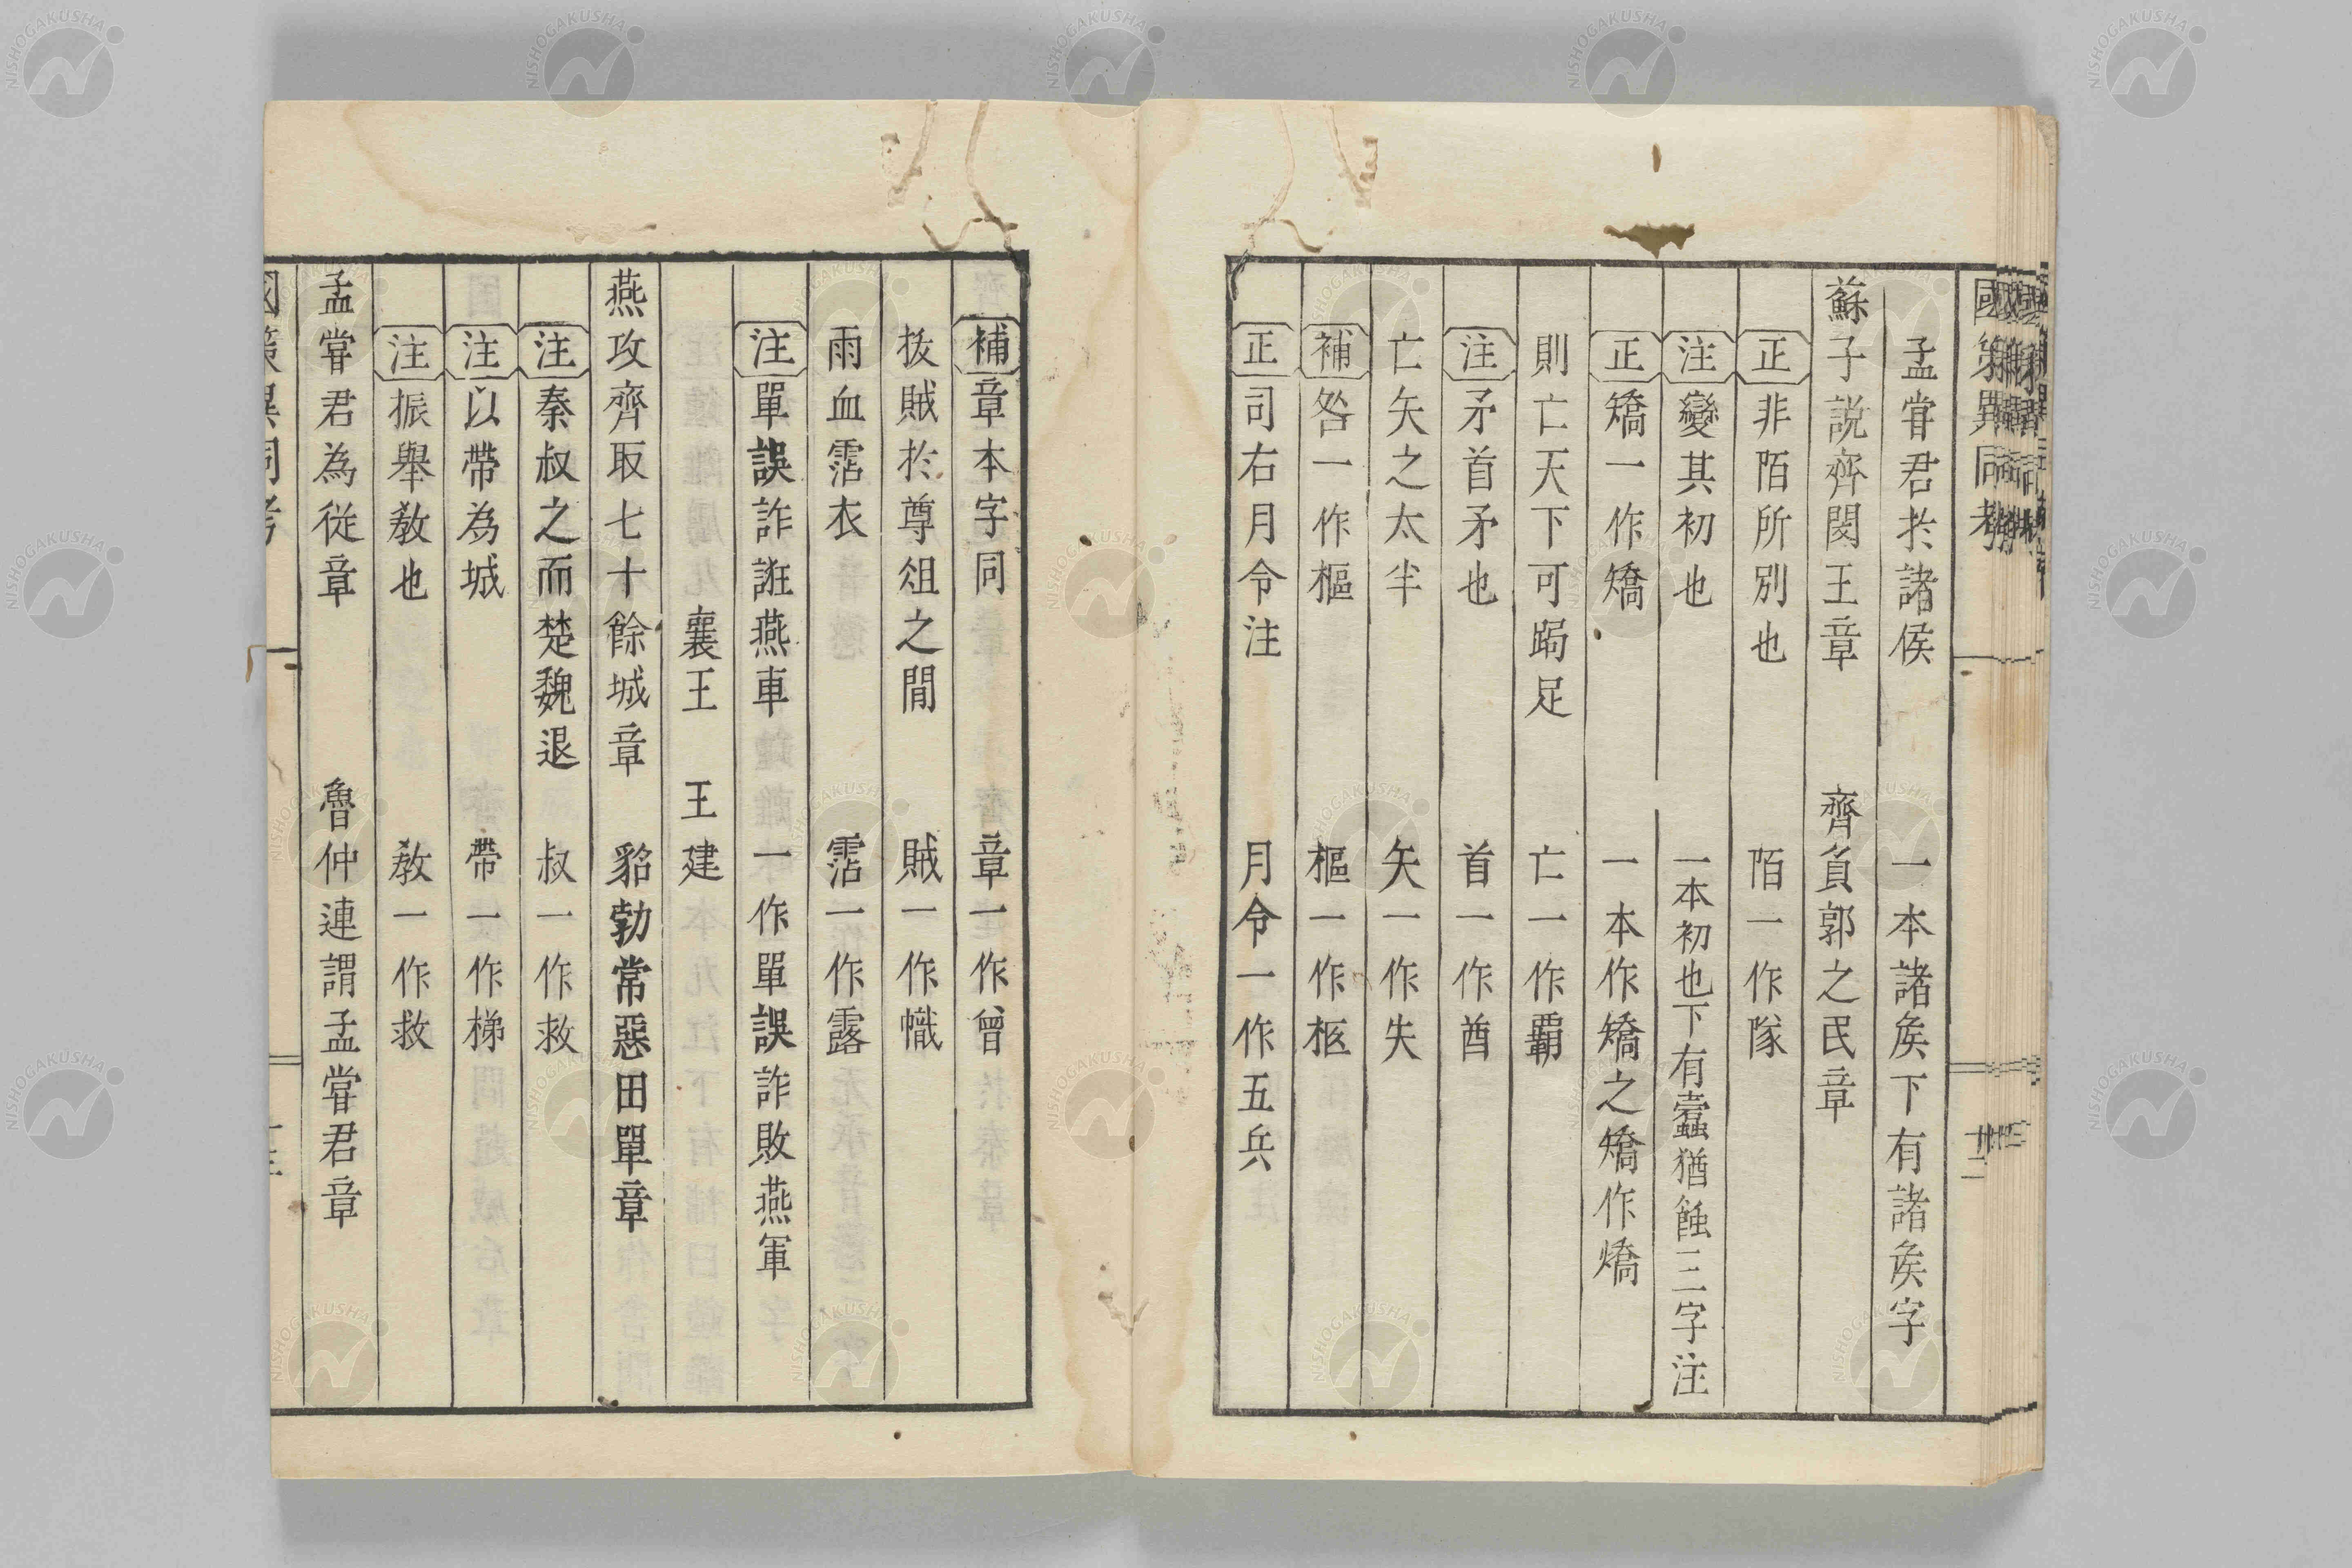 國策異同考
孟甞君於諸侯 一本諸矦下有諸矦字
蘇子説齊閔王章 齊負郭之民章
正 非陌所別也 陌一作隊
注 變其初也 一本初也下有蠹猶蝕三字注
正 矯一作矯 一本作矯之矯作燆
則亡天下可跼足 亡一作覇
注 矛首矛也 首一作酋
亡矢之太半 矢一作失
補 咎一作樞 樞一作柩
正 司右月令注 月令一作五兵
補 章本字同 章一作曾
拔賊於尊俎之間 賊一作幟
雨血霑衣 霑一作露
注 單誤詐誑燕車 一作單誤詐敗燕軍
襄王 王建
燕攻齊取七十餘城章 貂勃常惡田單章
注 秦叔之而楚魏退 叔一作救
注 以帶為城 帶一作梯
注 振舉敎也 敎一作救
孟甞君為從章 魯仲連謂孟甞君章
國策異同考